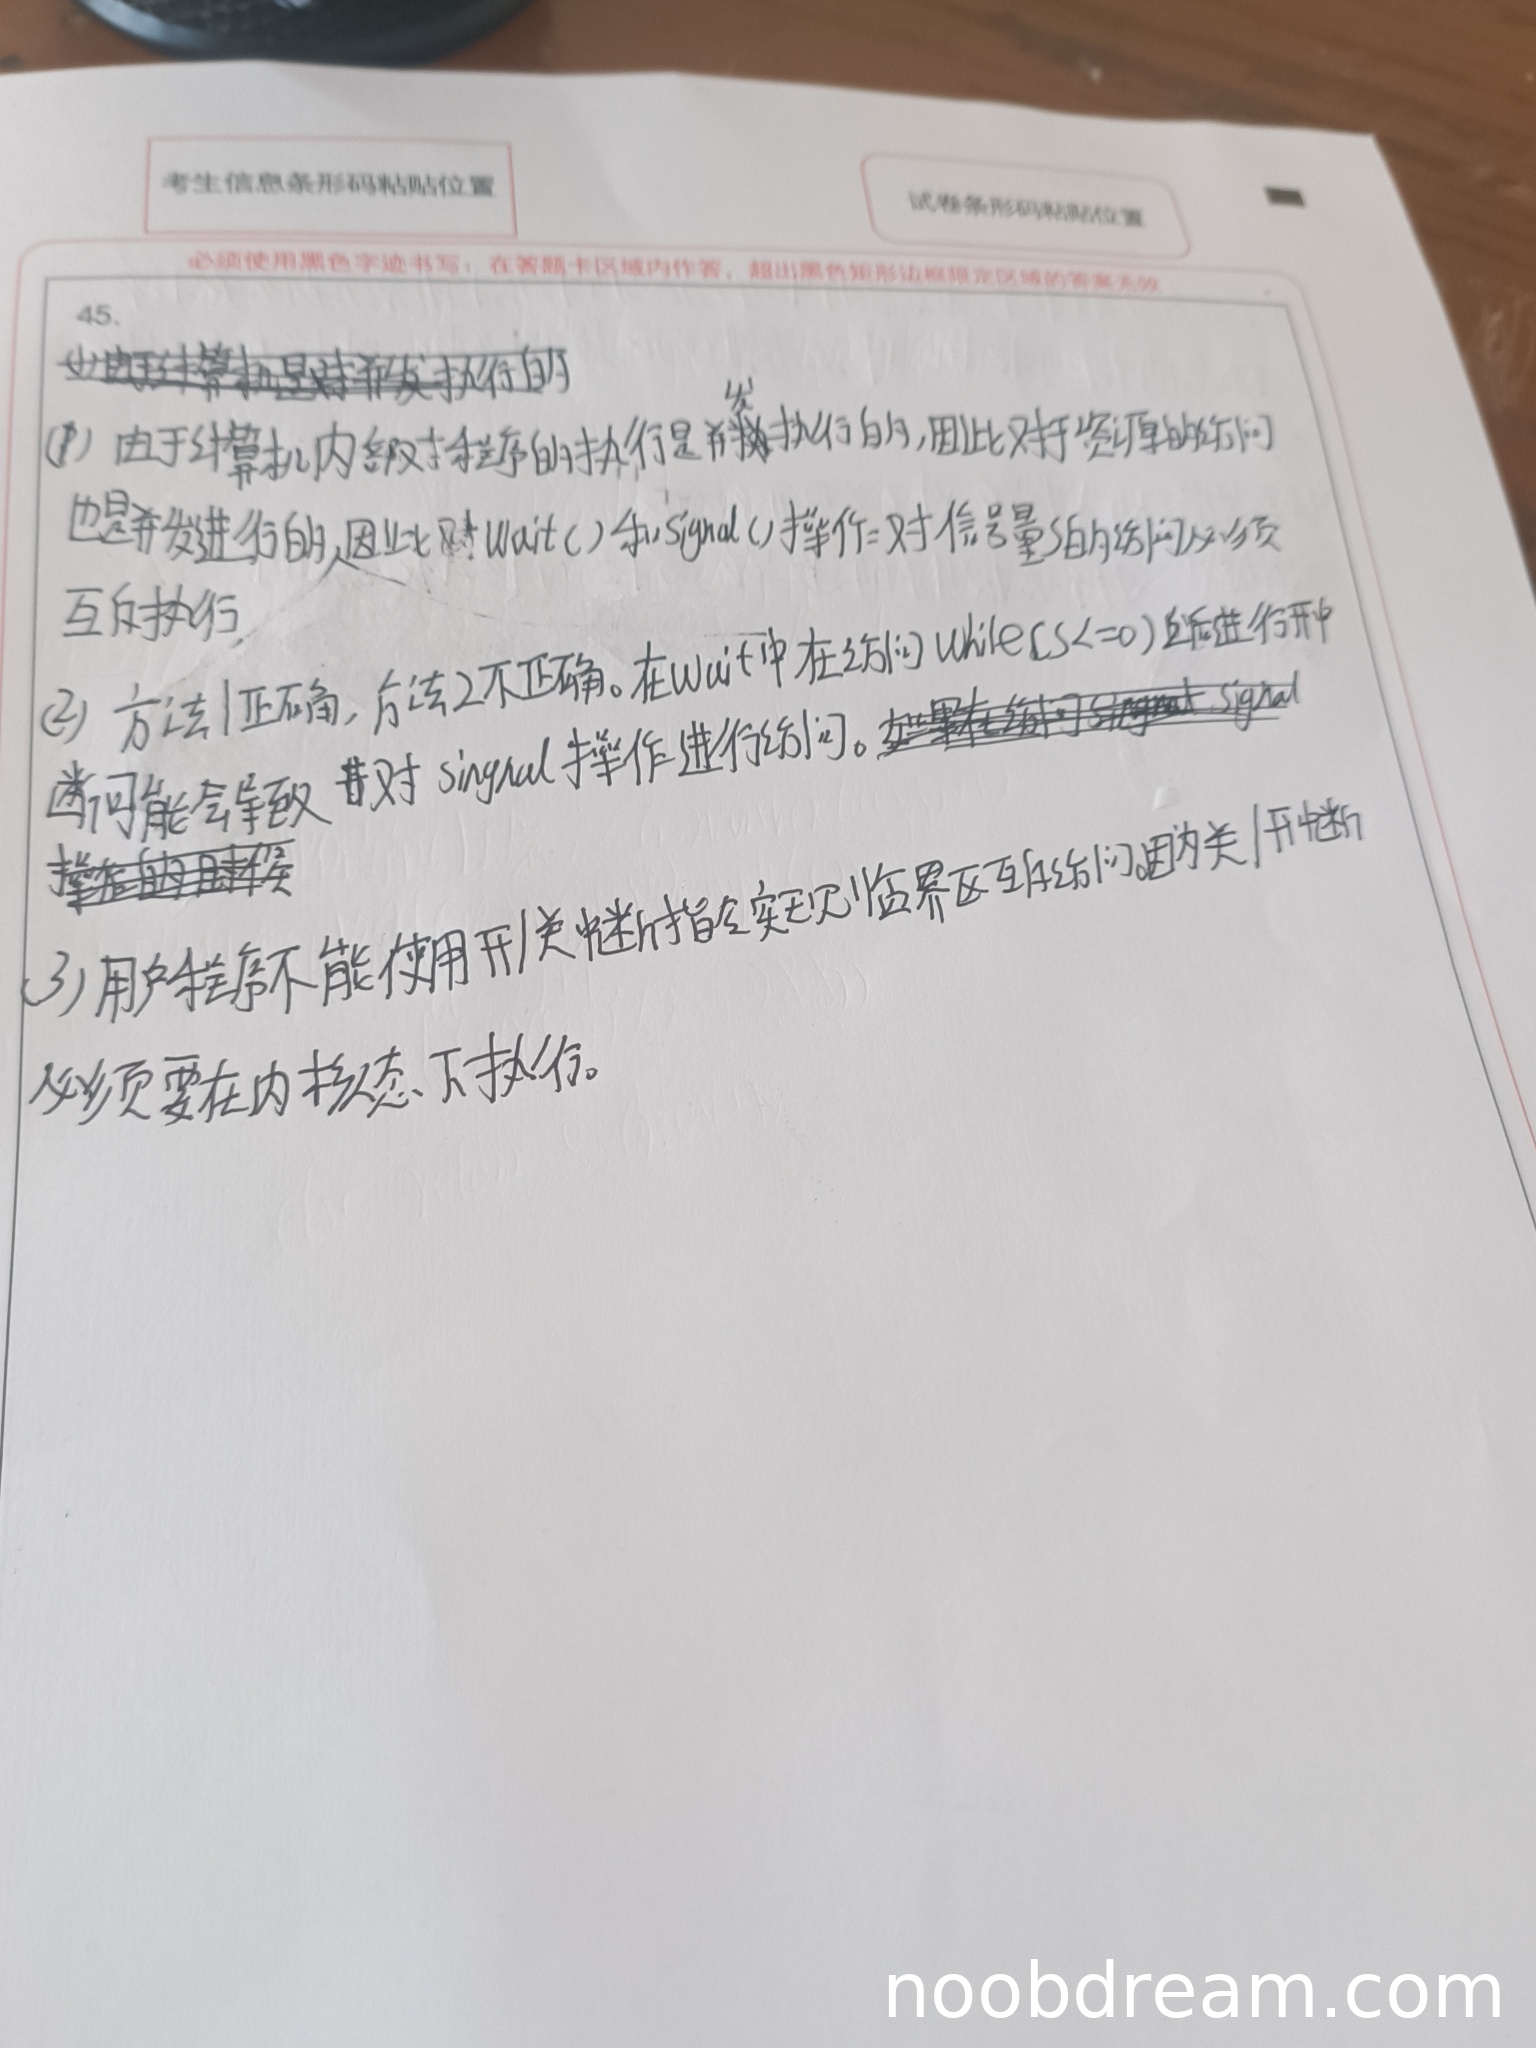 考生信息条形码粘贴位置
试卷条形码粘贴位置
必须使用黑色字迹书写,在答题卡区域内作答,超出黑色矩形边框限定区域的答案无效
45.
执行的
(1) 由于计算机内部对程序的执行是并发执行的,因此对于资源的访问
也是并发进行的,因此对wait()和signal()操作对信号量S的访问必须
互斥执行
(2) 方法1正确,方法2不正确。在wait中在访问while(S<=0)后进行开中
断可能会导致对singnal操作进行访问。
signal
操作的时候
(3) 用户程序不能使用开/关中断指令实现临界区互斥访问。因为关/开中断
必须要在内核态下执行。
noobdream.com